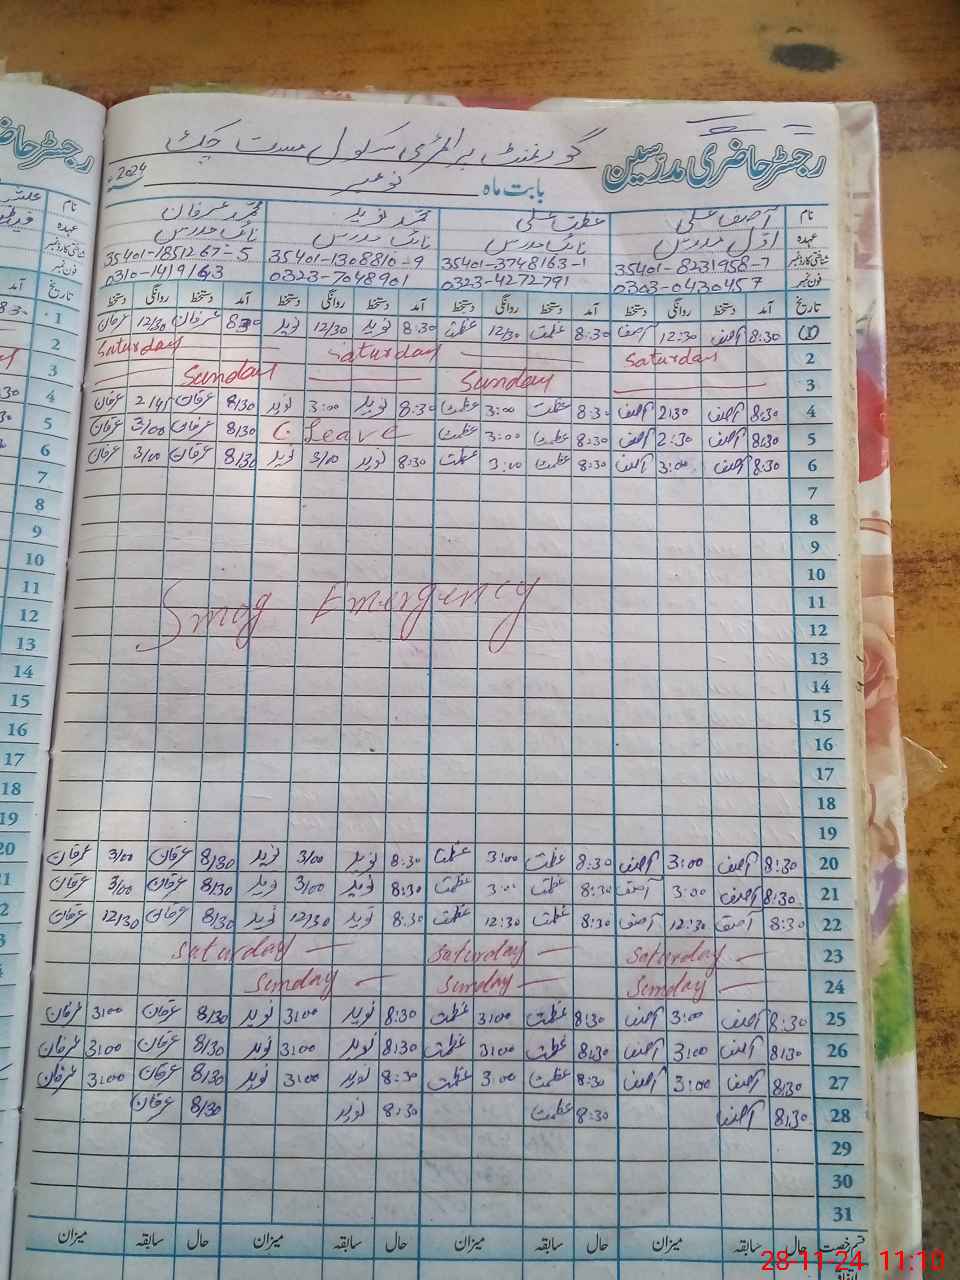 رجسٹر حاضری مدرسین
گورنمنٹ پرائمری سکول مست چک
بابت ماہ نومبر 2024
نام آصف علی عظمت علی محمد نوید محمد عرفان
عہدہ اول مدرس نائب مدرس نائب مدرس نائب مدرس
شناختی کارڈ نمبر 35401-8231958-7 35401-3748163-1 35401-1308810-9 35401-1851267-5
فون نمبر 0303-0430457 0323-4272791 0323-7048901 0310-1419163
تاریخ آمد دستخط روانگی دستخط آمد دستخط روانگی دستخط آمد دستخط روانگی دستخط آمد دستخط روانگی دستخط
1 8:30 آصف 12:30 آصف 8:30 عظمت 12/30 عظمت 8:30 نوید 12/30 نوید 8:30 عرفان 12/30 عرفان
2 Saturday Saturday Saturday
3 Sunday Sunday
4 8:30 آصف 2:30 آصف 8:30 عظمت 3:00 عظمت 8:30 نوید 3:00 نوید 8/30 عرفان 2/45 عرفان
5 8:30 آصف 2:30 آصف 8:30 عظمت 3:00 عظمت C. Leave 8/30 عرفان 3/00 عرفان
6 8:30 آصف 3:00 آصف 8:30 عظمت 3:00 عظمت 8:30 نوید 3/00 نوید 8/30 عرفان 3/00 عرفان
7
8
9
10
11
Smog Emergency
12
13
14
15
16
17
18
19
20 8:30 آصف 3:00 آصف 8:30 عظمت 3:00 عظمت 8:30 نوید 3/00 نوید 8/30 عرفان 3/00 عرفان
21 8:30 آصف 3:00 آصف 8:30 عظمت 3:00 عظمت 8:30 نوید 3/00 نوید 8/30 عرفان 3/00 عرفان
22 8:30 آصف 12:30 آصف 8:30 عظمت 12:30 عظمت 8:30 نوید 12/30 نوید 8/30 عرفان 12/30 عرفان
23 Saturday Saturday Saturday
24 Sunday Sunday Sunday
25 8:30 آصف 3:00 آصف 8:30 عظمت 3:00 عظمت 8:30 نوید 3:00 نوید 8/30 عرفان 3:00 عرفان
26 8:30 آصف 3:00 آصف 8:30 عظمت 3:00 عظمت 8:30 نوید 3:00 نوید 8/30 عرفان 3:00 عرفان
27 8:30 آصف 3:00 آصف 8:30 عظمت 3:00 عظمت 8:30 نوید 3:00 نوید 8/30 عرفان 3:00 عرفان
28 8:30 آصف 8:30 عظمت 8:30 نوید 8/30 عرفان
29
30
31
قسم رخصت حال سابقہ میزان حال سابقہ میزان حال سابقہ میزان حال سابقہ میزان
28-11-24 11:10